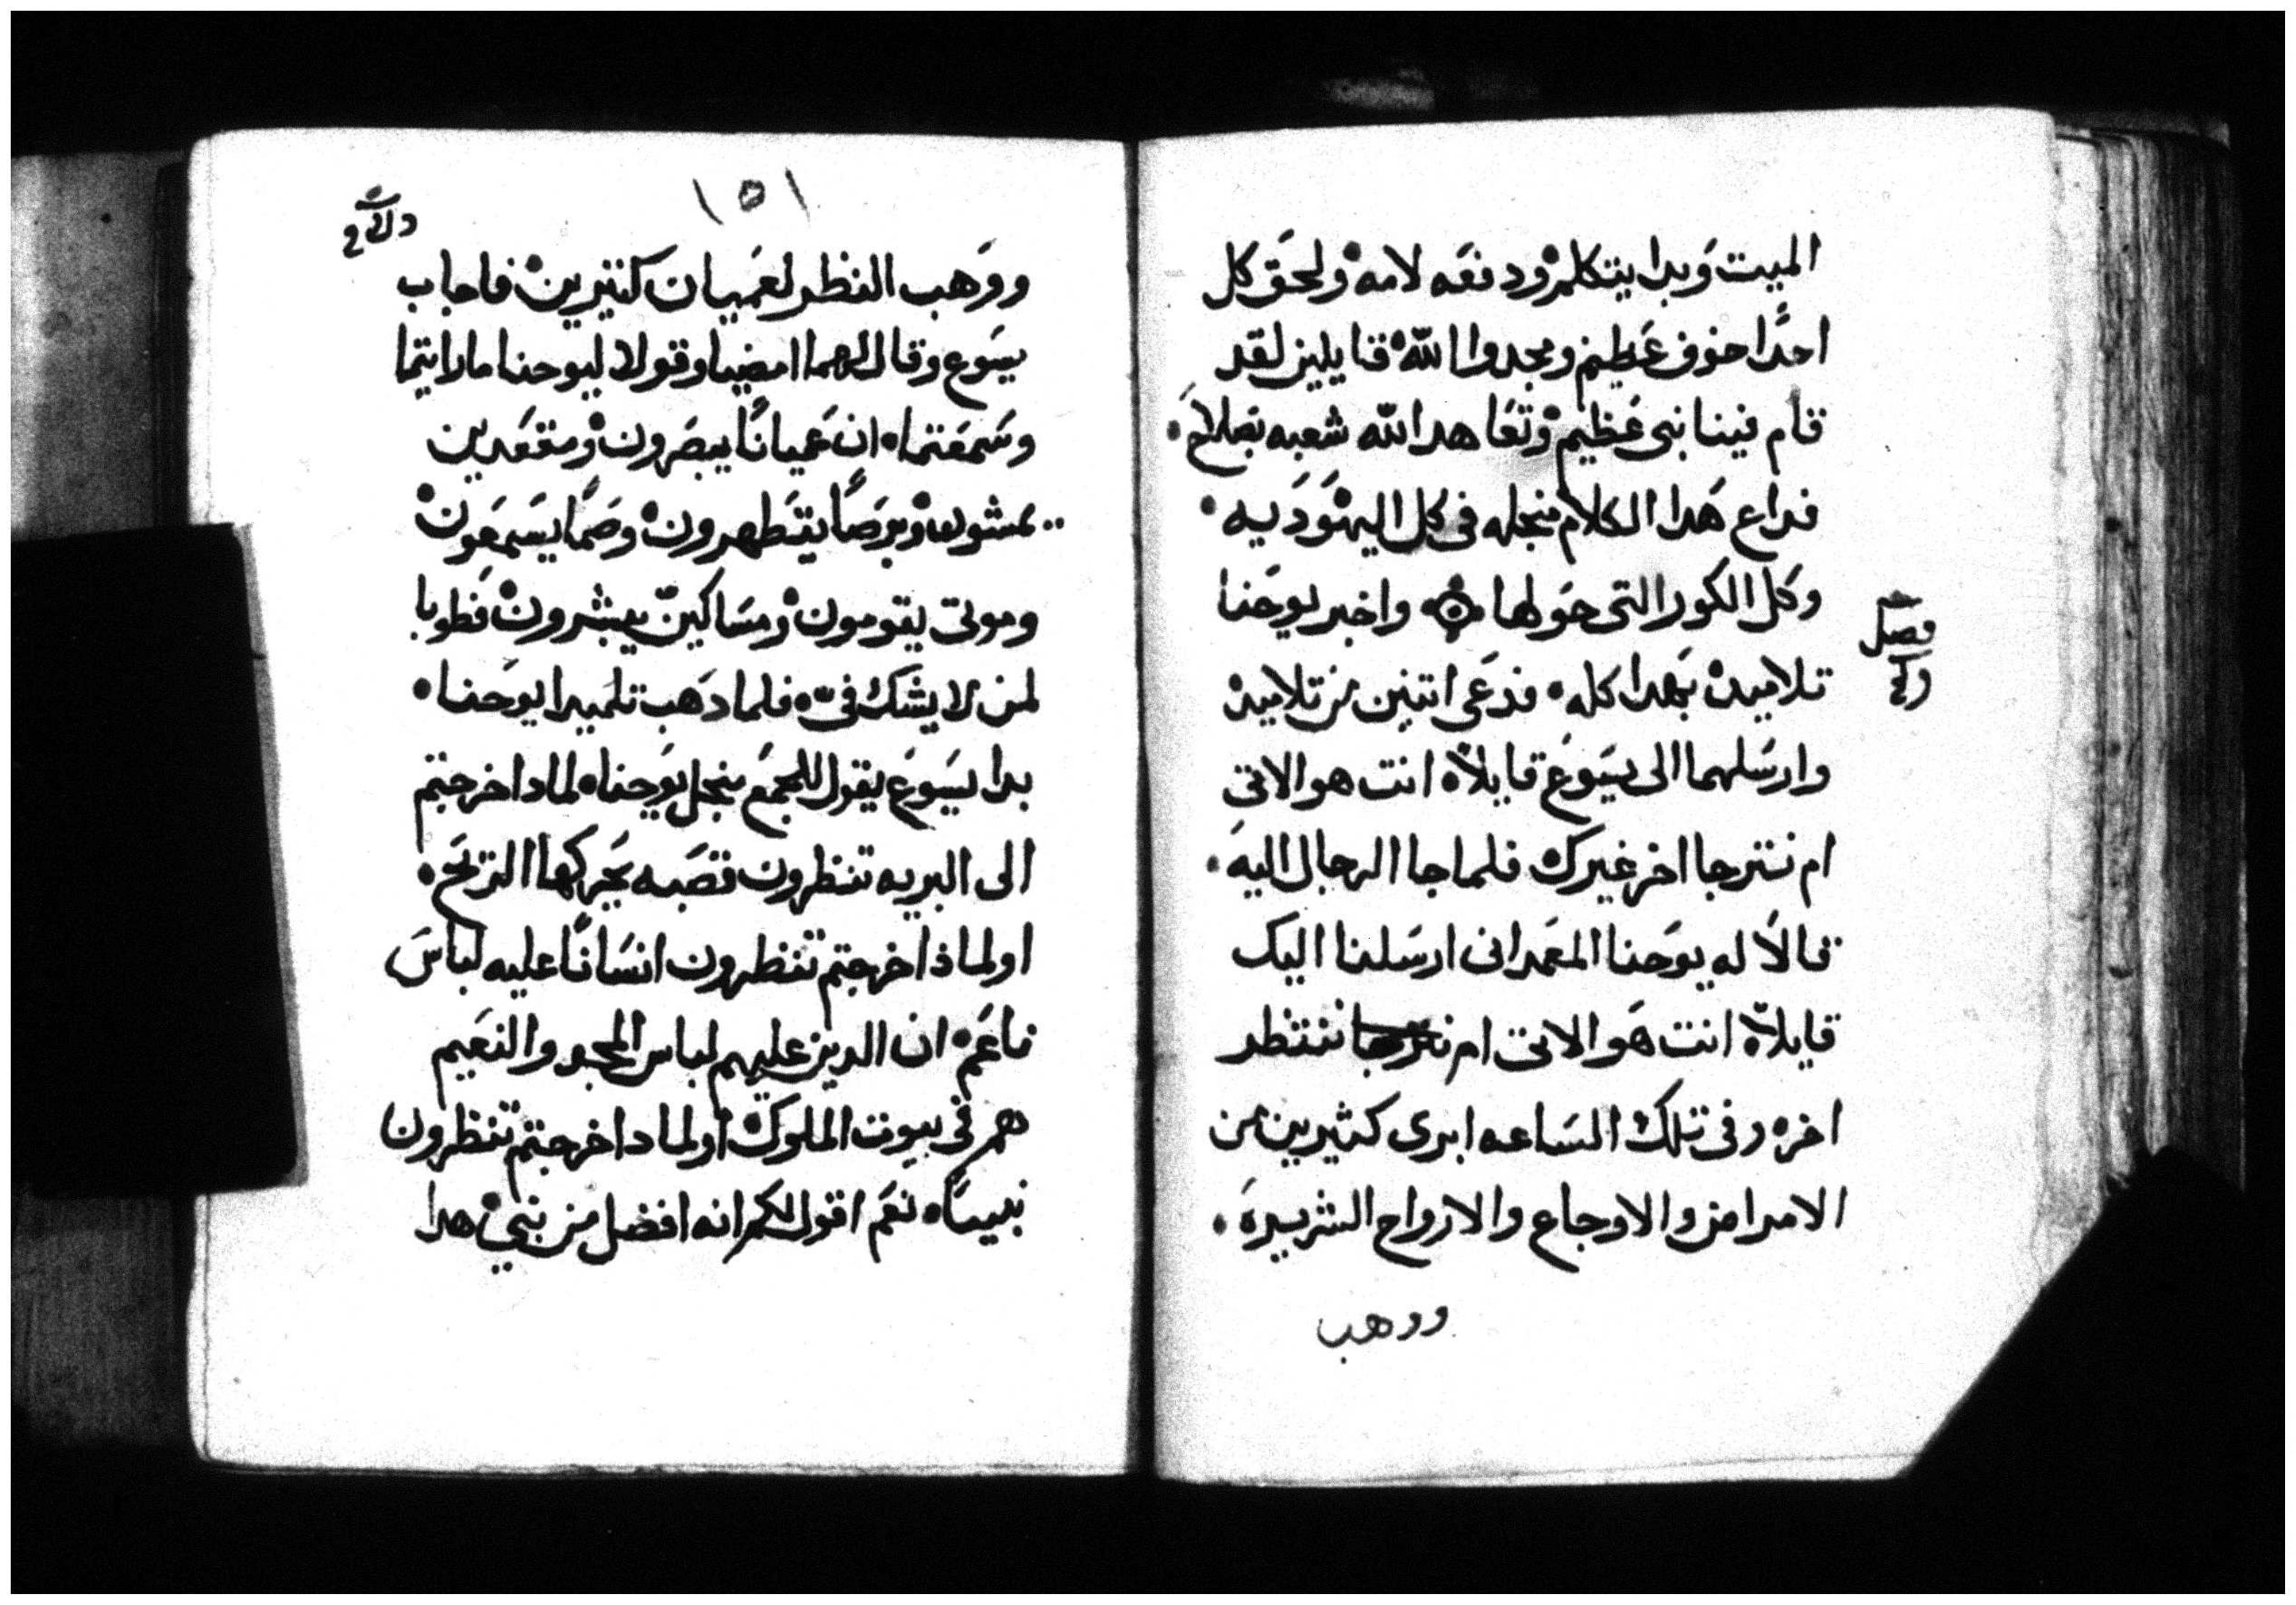 الميت وبدا يتكلم ودفعه لامه ولحق كل
احدًا خوف عظيم ومجدوا الله قايلين لقد
قام فينا نبى عظيم وتعاهدا لله شعبه بصلاح
فداع هدا الكلام منجله فى كل اليهوديه
وكل الكور التى حولها واخبر يوحنا
فصل
تلاميده بهدا كله فدعى اتنين من تلاميده
وارسلهما الى يسوع قايلاً انت هو الاتى
ام نترجا اخر غيرك فلما جا الرجال اليه
قالا له يوحنا المعمدانى ارسلنا اليك
قايلاً انت هو الاتى ام ننتظر
اخر وفى تلك الساعه ابرى كثيرين من
الامراض والاوجاع والارواح الشريره
ووهب
١٥١
ووهب النظر لعميان كتيرين فاجاب
يسوع وقال لهما امضيا وقولا ليوحنا ما رايتما
وسمعتما ان عميانًا يبصرون ومقعدين
يمشون وبرصًا يتطهرون وصمًا يسمعون
وموتى يقومون ومساكين يبشرون فطوبا
لمن لا يشك فى فلما دهب تلميدا يوحنا
بدا يسوع يقول للجمع منجل يوحنا لمادا خرجتم
الى البريه تنظرون قصبه يحركها الريح
او لماذا خرجتم تنظرون انسانًا عليه لباس
ناعم ان الدين عليهم لباس المجد والنعيم
هم فى بيوت الملوك او لمادا خرجتم تنظرون
نبيًا نعم اقول لكم انه افضل من نبى هدا